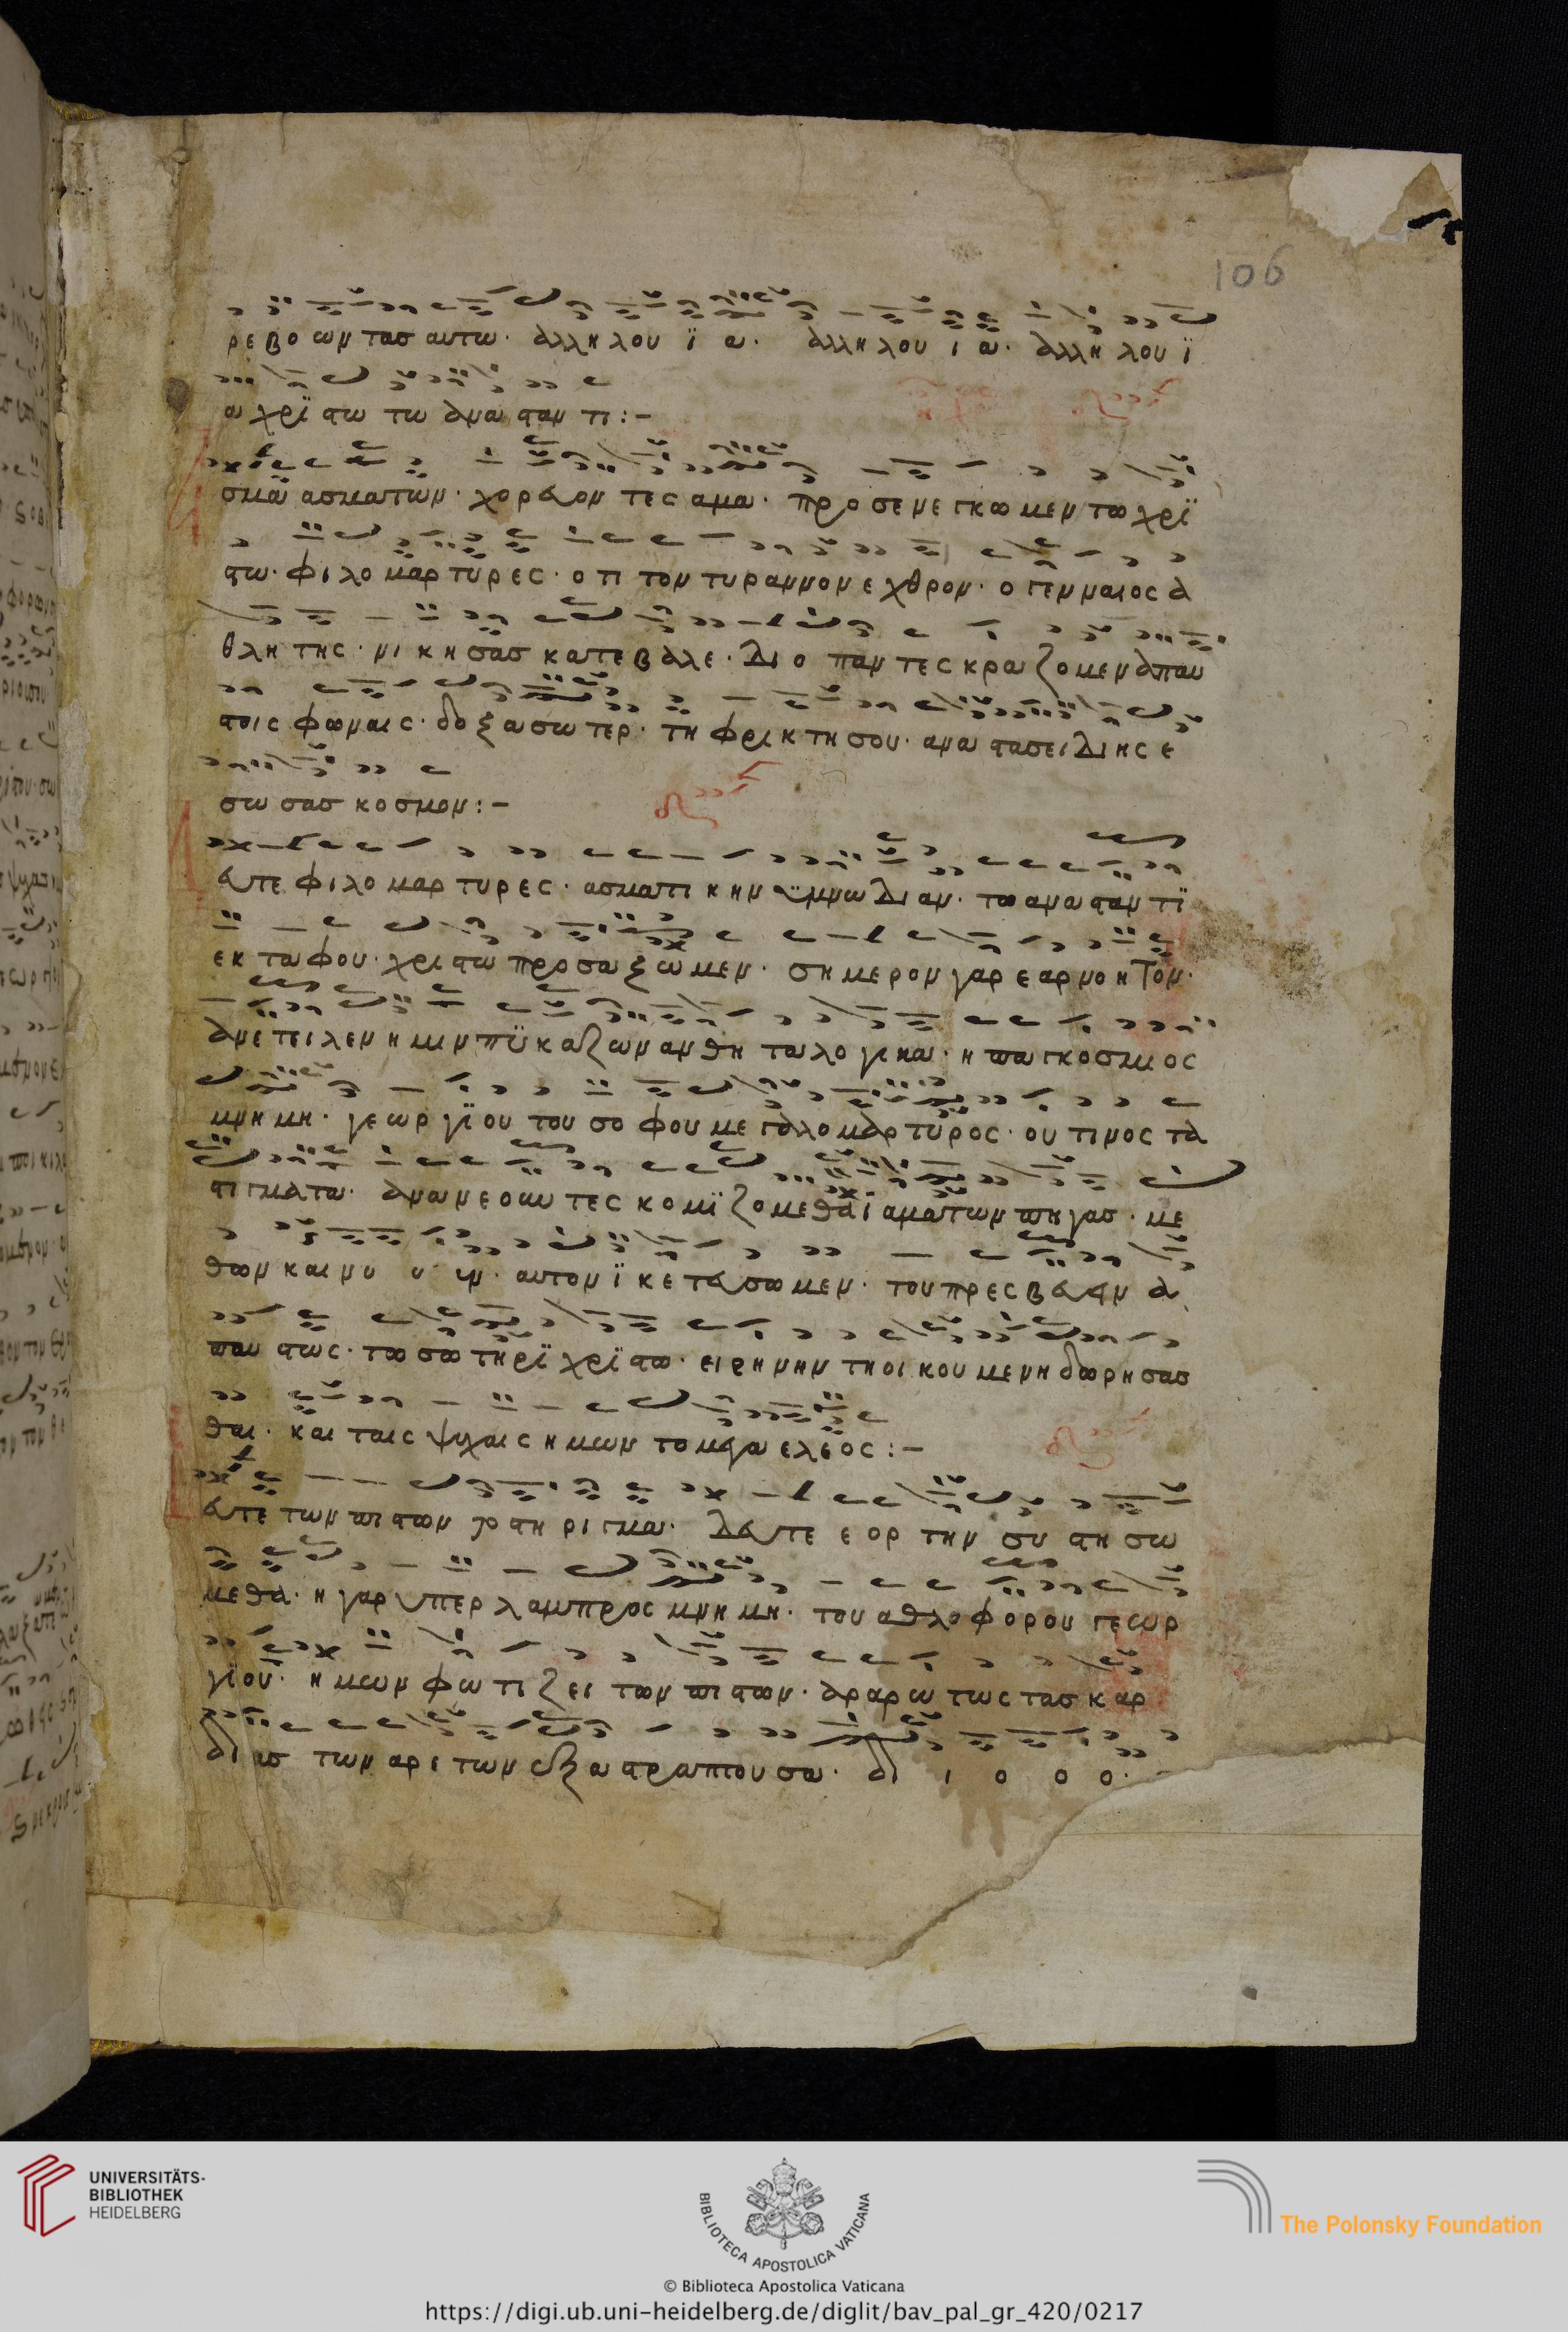 106
ρε βο ων τασ αυτω· αλλη λου ϊ α· αλλη λου ι α· αλλη λου ϊ
α χρϊ στω τω ανα σταν τι:–
σμα ασματων· χορ ευον τες αμα· προ σε νε γκω μεν τω χρϊ
στω· φι λο μαρ τυ ρες· ο τι τον τυ ραννον ε χθρον· ο γεν ναιος α
θλη της· νι κη σασ κατε β αλε· δι ο παν τες κρα ζο μεν απαυ
στοις φωναις· δο ξα σω τερ· τη φρι κ τη σου· ανα στασει δι ης ε
σω σασ κο σμον:–
ευτε φι λο μαρ τυ ρες· ασματι κην ϋμνω δι αν· τω ανα σταν τϊ
εκ τα φου· χρι στω προ σα ξω μεν· ση με ρον γαρ ε αρ νο η τον·
ανε τει λεν η μιν πϋ κα ζων αν θη τα λο γικα· η πα γκο σμι ος
μνη μη· γε ωρ γϊ ου του σο φου με γαλο μαρ τυ ρος· ου τινος τα
στι γματα· ανα νε ουν τες κο μϊ ζο μεθα ι αματων πη γασ· με
θων και νυ υ υν· αυτον ϊ κε τευσω μεν· του πρεσ β ευειν α
παυ στως· τω σω τη ρϊ χρϊ στω· ειρη νην τη οι κου με νη δωρη σασ
θαι· και ταις ψυχαις η μων το μεγα ελε ος:–
ευτε των πι στων το στη ρι γμα· δευτε ε ορ την συ στη σω
μεθα· η γαρ υπερ λαμπρος μνη μη· του αθλο φο ρου γεωρ
γϊ ου· η μων φω τι ζει των πι στων· αραρω τως τασ καρ
δι ασ των αρε των εξ α στραπτου σα· δι ι ο ο ο·
UNIVERSITÄTS-
BIBLIOTHEK
HEIDELBERG
BIBLIOTECA APOSTOLICA VATICANA
The Polonsky Foundation
© Biblioteca Apostolica Vaticana
https://digi.ub.uni-heidelberg.de/diglit/bav_pal_gr_420/0217